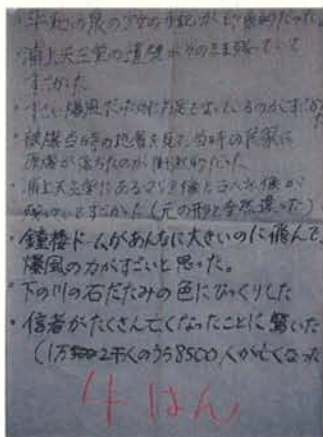 ・平和の泉の少女の手記が印象的だった。
・浦上天主堂の遺壁がそのまま残っていて
すごかった
・すごい爆風だったのにまだ立っているのがすごかった
・被爆当時の地層を見て、当時の民家に
原爆が落ちたのが衝撃的だった
・浦上天主堂にあるマリア像と 像が
残っていてすごかった(元の形と全然違った)
・鐘楼ドームがあんなに大きいのに飛んで、
爆風の力がすごいと思った。
・下の川の石だたみの色にびっくりした
・信者がたくさん亡くなったことに驚いた
(1万2千人のうち8500人が亡くなった
4はん